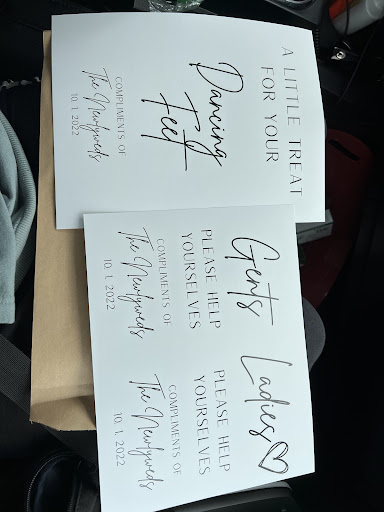 A LITTLE TREAT
FOR YOUR
Dancing
Feet
COMPLIMENTS OF
The Newlyweds
10. 1. 2022
Gents
PLEASE HELP
YOURSELVES
COMPLIMENTS OF
The Newlyweds
10. 1. 2022
Ladies♡
PLEASE HELP
YOURSELVES
COMPLIMENTS OF
The Newlyweds
10. 1. 2022